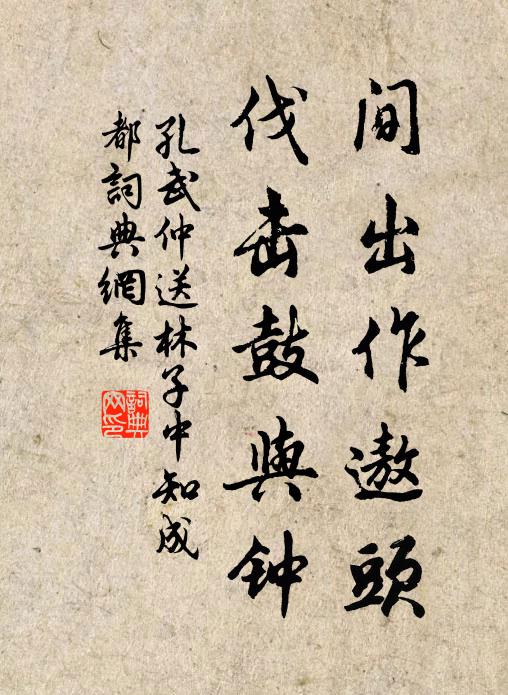 间出作遨頭
伐击鼓與钟
孔武仲送林子中知成
都詞典網集
詞典网印